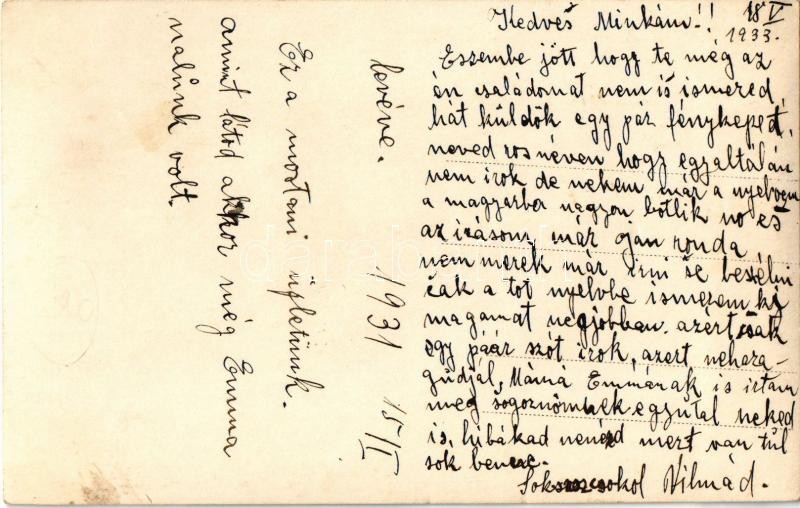 18/V
1933.
Kedveš Minkám!!
Essembe jött hogy te még az
én családomat nem is ismered,
hát küldök egy pár fényképed,
neved rosnéven hogy egyaltálán
nem irok de nekem már a nyelvem
a magyarba nagyon botlik no es
az irásom már ojan ronda
nem merek már irni se beszélni
čak a tot nyelvbe ismerem ki
magamat negjobban. azért čak
egy páár szot irok, azert nehara-
gudjál, Mámá Emmának is irtam
meg sogoznőmnek egyutal neked
is, hibákad nenézd mert van túl
sok benne.
Sokszorcsokol Vilmád.
levéve. 1931 15/I
Ez a mostani üzletünk.
amint látod akkor még Emma
nalunk volt.
darabanth